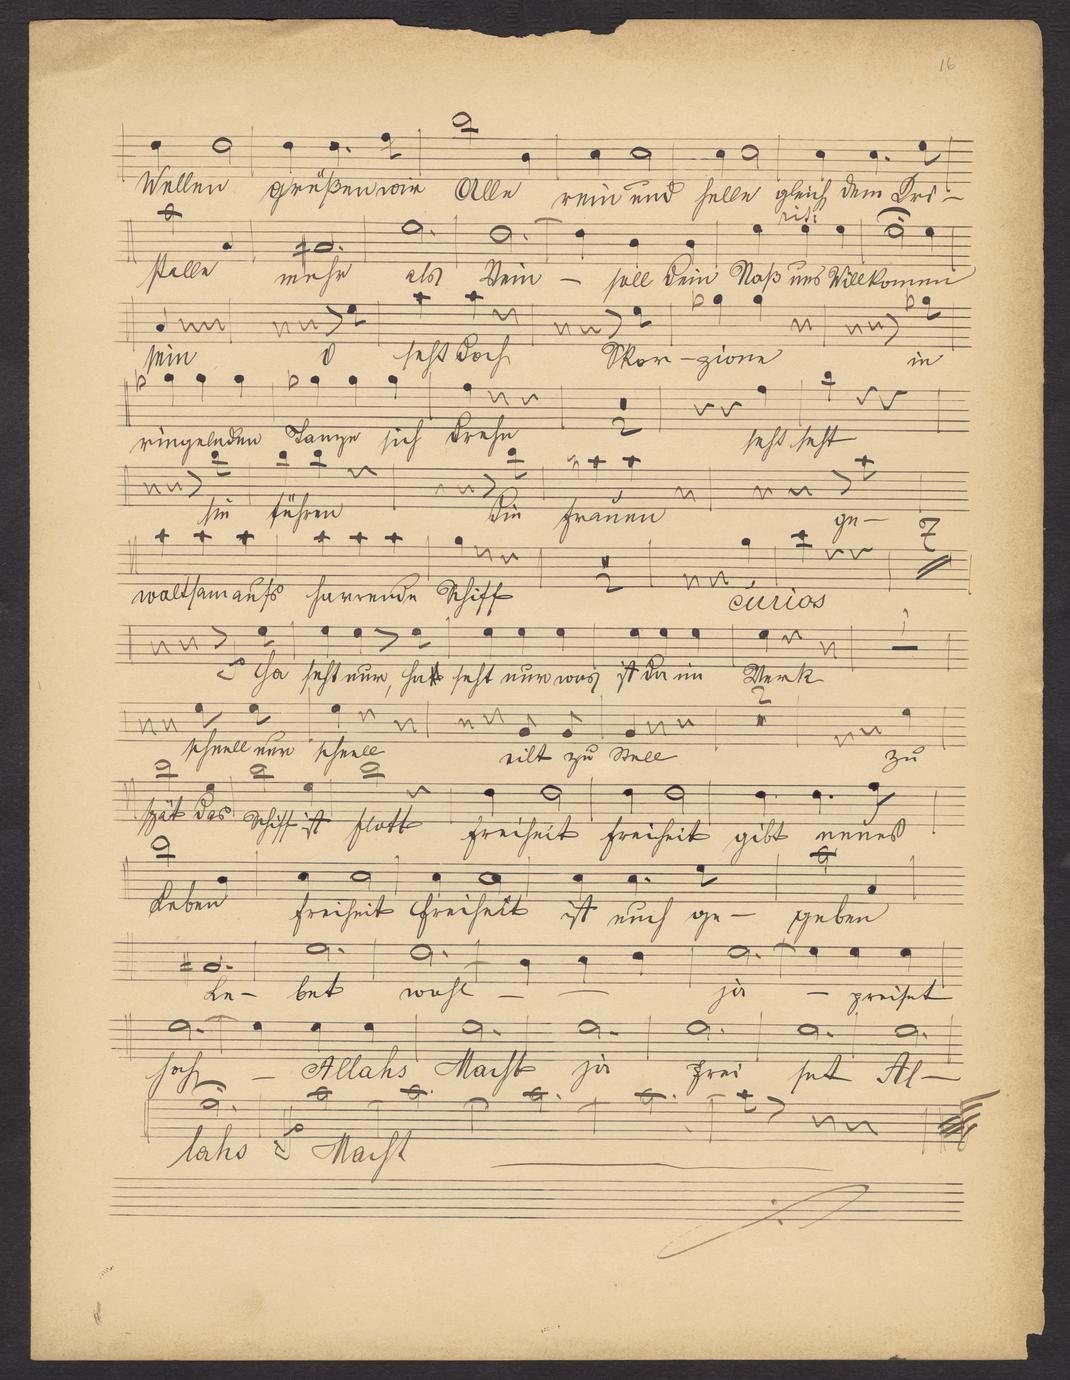 16
Wellen grüßen wir Alle rein und helle gleich dem Cri-
rit:
stalle mehr als Wein – soll dein Naß uns Willkomen
sein O seht doch Skor-pione in
ringelnden Tanze sich drehn seht seht
2
sie führen die Frauen ge-
waltsam aufs harrende Schiff curios
2
7
Ha seht nur, ha seht nur was ist da im Werk
schnell nur schnell eilt zu Stell zu
2
spät das Schiff ist flott Freiheit Freiheit gibt neues
Leben Freiheit Freiheit ist euch ge- geben
Le- bet wohl – – ja – preiset
hoch – Allahs Macht ja prei set Al-
lahs Macht